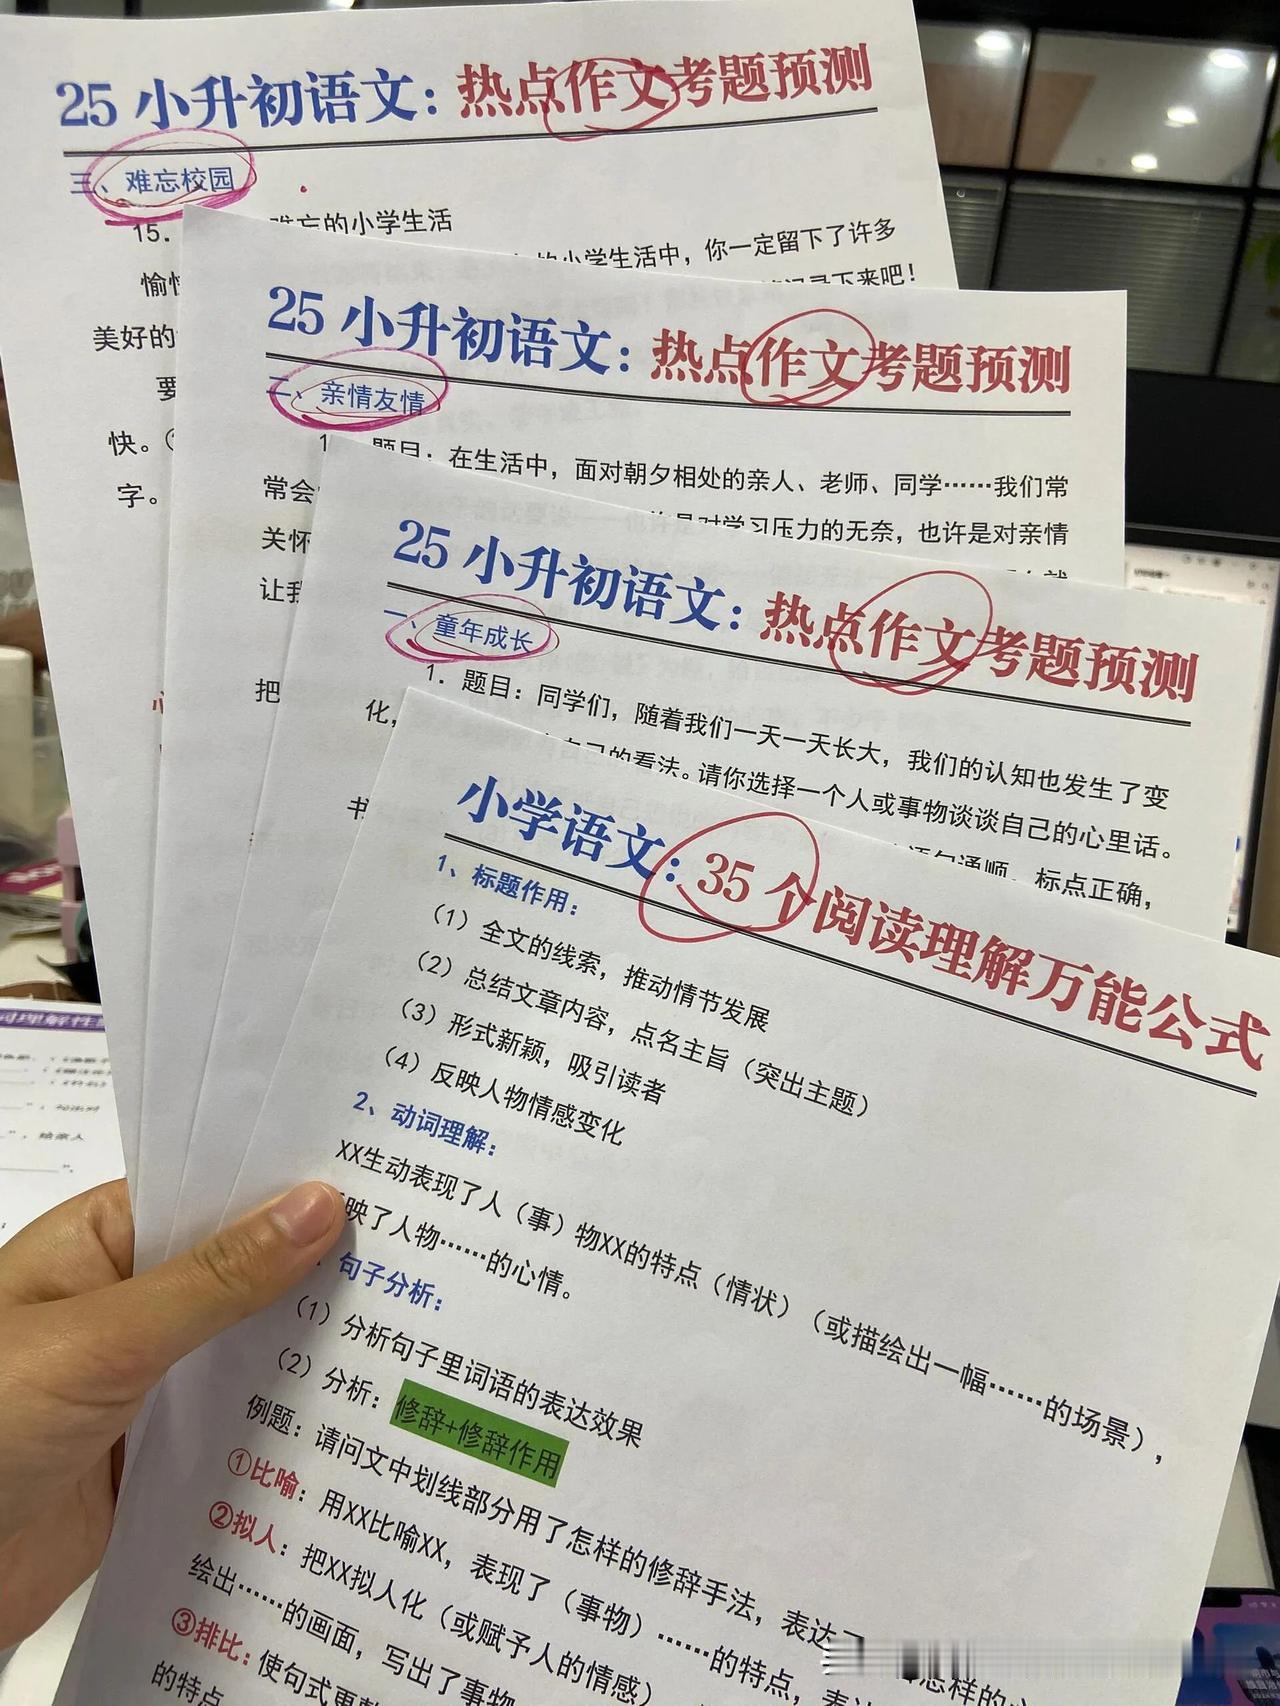 25 小升初语文：热点作文考题预测
三、难忘校园
15. 难忘的小学生活
小学生活中，你一定留下了许多
愉
记录下来吧！
美好的
要
快。
字。
25 小升初语文：热点作文考题预测
二、亲情友情
题目：在生活中，面对朝夕相处的亲人、老师、同学……我们常
常会
是对学习压力的无奈，也许是对亲情
关怀
让我
把
25 小升初语文：热点作文考题预测
一、童年成长
1. 题目：同学们，随着我们一天一天长大，我们的认知也发生了变
化，
自己的看法。请你选择一个人或事物谈谈自己的心里话。
语句通顺，标点正确，
书
小学语文：35 个阅读理解万能公式
1、标题作用：
（1）全文的线索，推动情节发展
（2）总结文章内容，点名主旨（突出主题）
（3）形式新颖，吸引读者
（4）反映人物情感变化
2、动词理解：
XX生动表现了人（事）物XX的特点（情状）（或描绘出一幅……的场景），
映了人物……的心情。
句子分析：
（1）分析句子里词语的表达效果
（2）分析：修辞+修辞作用
例题：请问文中划线部分用了怎样的修辞手法，表达了
怎样的
①比喻：用XX比喻XX，表现了（事物）……的特点，表达
②拟人：把XX拟人化（或赋予人的情感）
绘出……的画面，写出了事物
③排比：使句式更
的特点